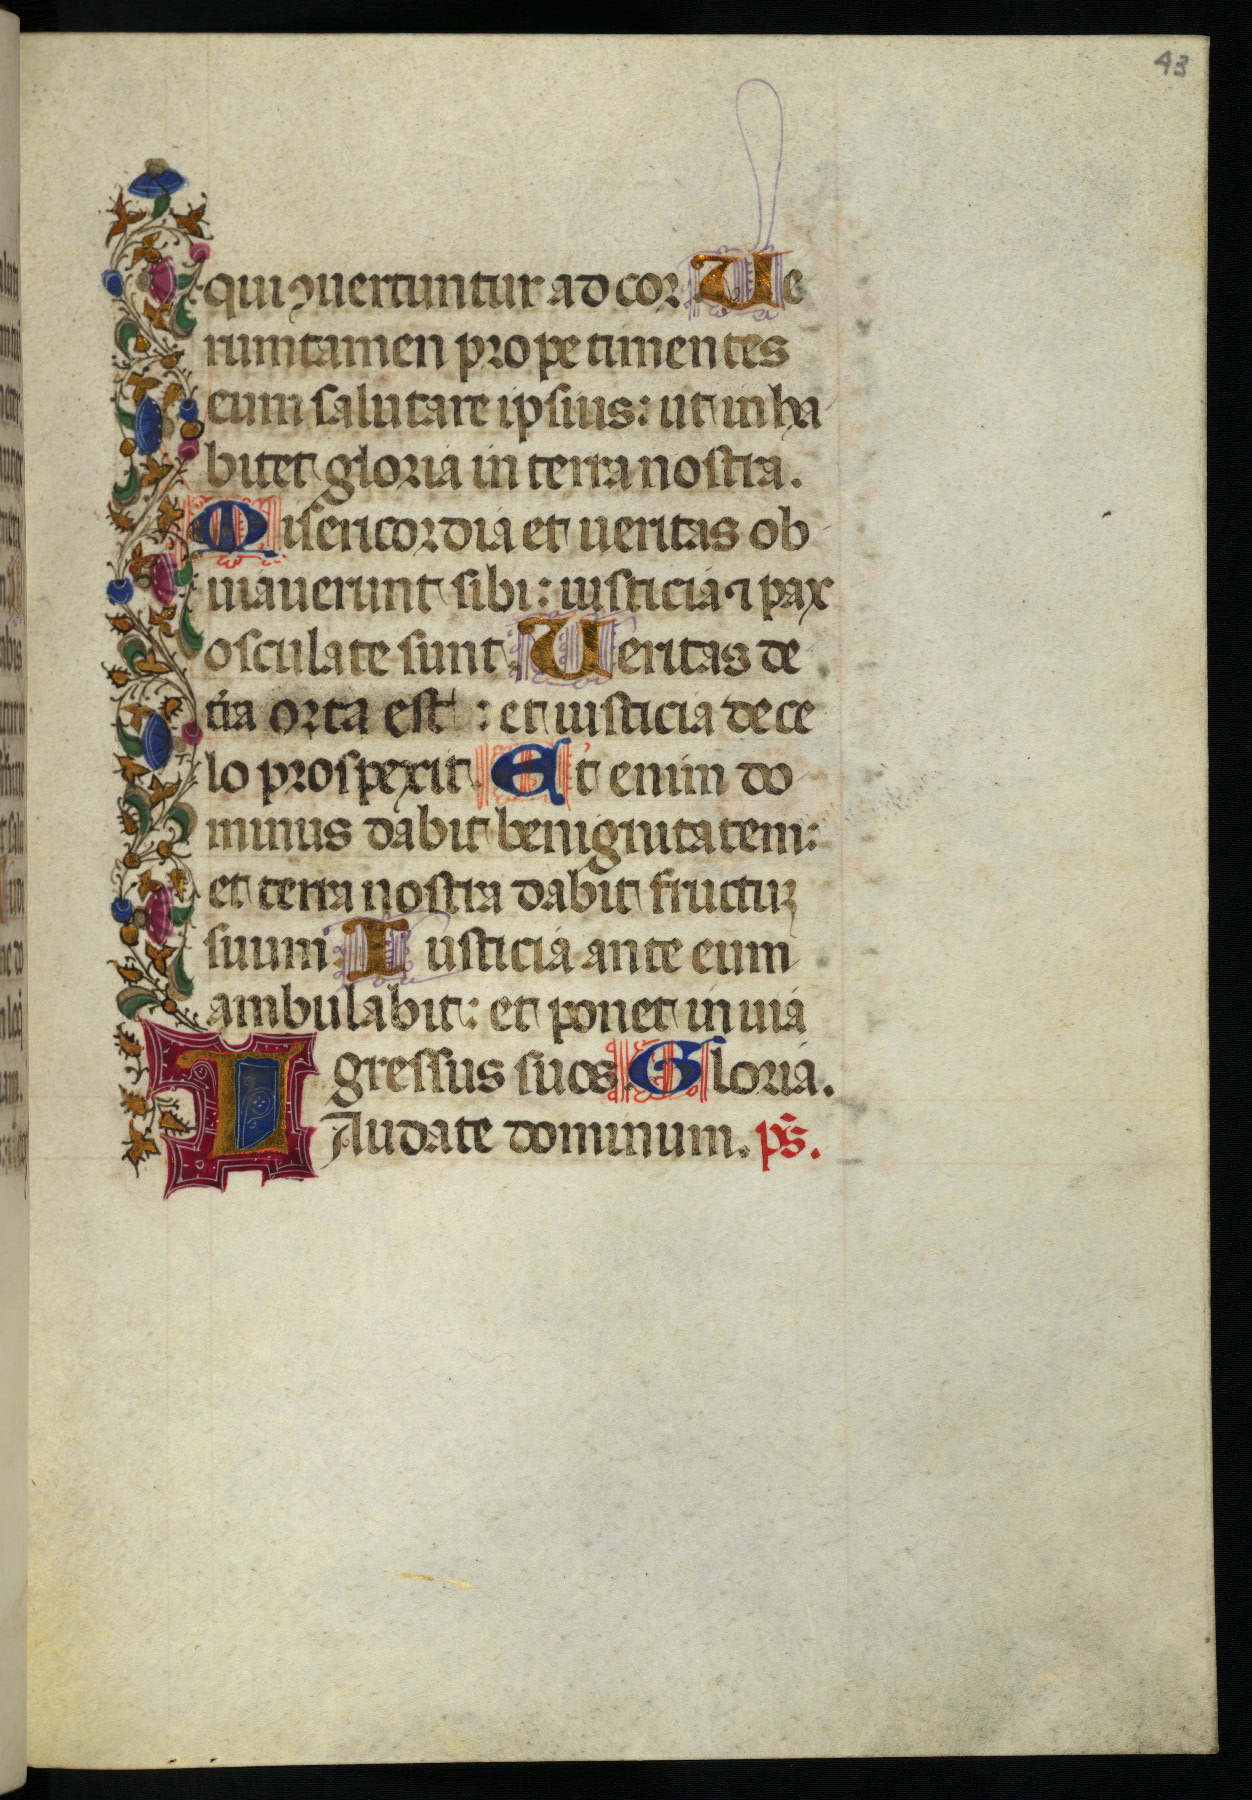 43
qui ꝯuertuntur ad cor Ue
rumtamen prope timentes
eum salutare ipsius: ut inha
bitet gloria in terra nostra.
Misericordia et ueritas ob
uiauerunt sibi: iusticia ⁊ pax
osculate sunt. Ueritas de
t̄ia orta est : et iusticia de ce
lo prospexit. Et enim do
minus dabit benignitatem:
et terra nostra dabit fructuꝫ
suum. Iusticia ante eum
ambulabit: et ponet in uia
gressus suos. Gloria.
Laudate dominum. p̄s.